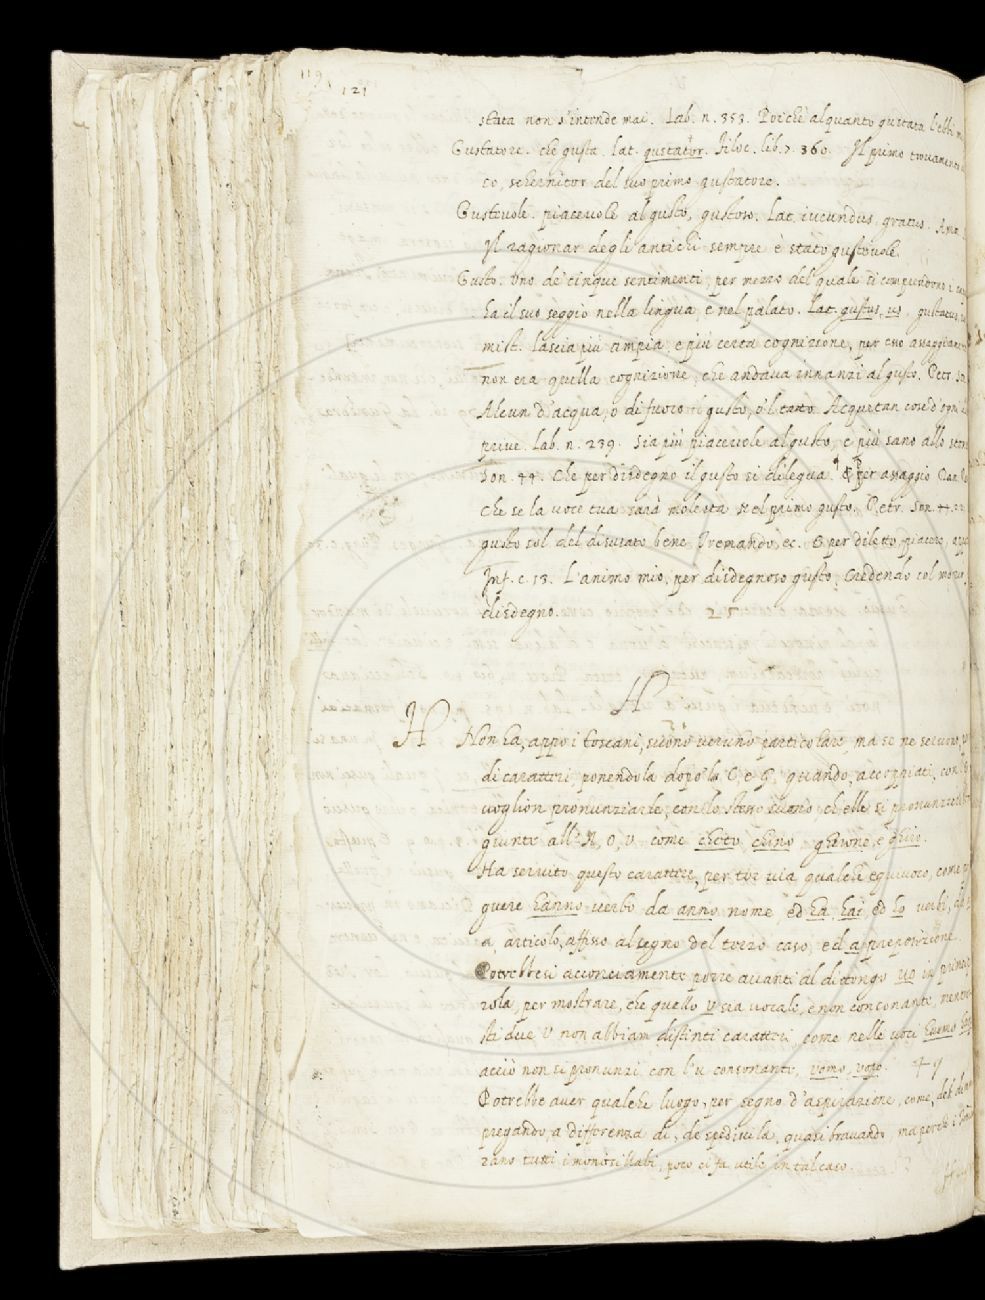 119
121
stata non s'intende mai. Lab. n. 353. Poiche alquanto gustata l'ebbi
Gustatore. che gusta. lat. gustator. Filoc. lib. 7. 360. Il primo
co, schernitor del suo primo gustatore.
Gustevole. piacevole al gusto, gustoso. Lat. iucundus, gratus.
Il ragionar degli antichi sempre è stato gustevole.
Gusto. Uno de' cinque sentimenti, per mezzo del quale si comprendono i
ha il suo seggio nella lingua, e nel palato. Lat. gustus, us, gustatus,
mist. Lascia più ampia, e più certa cognizione, per esso
non era quella cognizione, che andava innanzi al gusto. Petr. Son.
Alcun d'acqua, o di fuoco il gusto, e'l tatto Acquetan cose d'ogni
prive. Lab. n. 239. Sia più piacevole al gusto, e più sano allo
Son. 44. Che per disdegno il gusto si dilegua. E per assaggio
Che se la voce tua sarà molesta Nel primo gusto. Petr. Son.
gusto sol del disusato bene, Tremando, ec. E per diletto, piacere,
Inf. c. 13. L'animo mio, per disdegnoso gusto, Credendo col
disdegno. 25
H
H Non ha, appo i Toscani, suono veruno particolare, ma se ne servono,
di carattere, ponendola dopo la C e G, quando, accoppiati, con
voglion pronunziarle, con lo stesso suono, ch'elle si
giunte all'A, O, V come cheto, chino, gherone, e ghiro.
Ha servito questo carattere, per tor via qualche equivoco, come
guere hanno verbo da anno nome ed ha, hai, ed ho verbi,
a articolo, affisso al segno del terzo caso, ed a preposizione.
Potrebbesi acconciamente porre avanti al dittongo uo in
rola, per mostrare, che quello V sia vocale, e non consonante,
sti due V non abbiam distinti caratteri, come nelle voci huomo
acciò non si pronunzi con l'u consonante, vomo, vopo. 49
Potrebbe aver qualche luogo, per segno d'aspirazione, come,
pregando, a differenza di, de spediscila, quasi bravando, ma perchè
rano tutti i monosillabi, poco ci fa utile in tal caso.